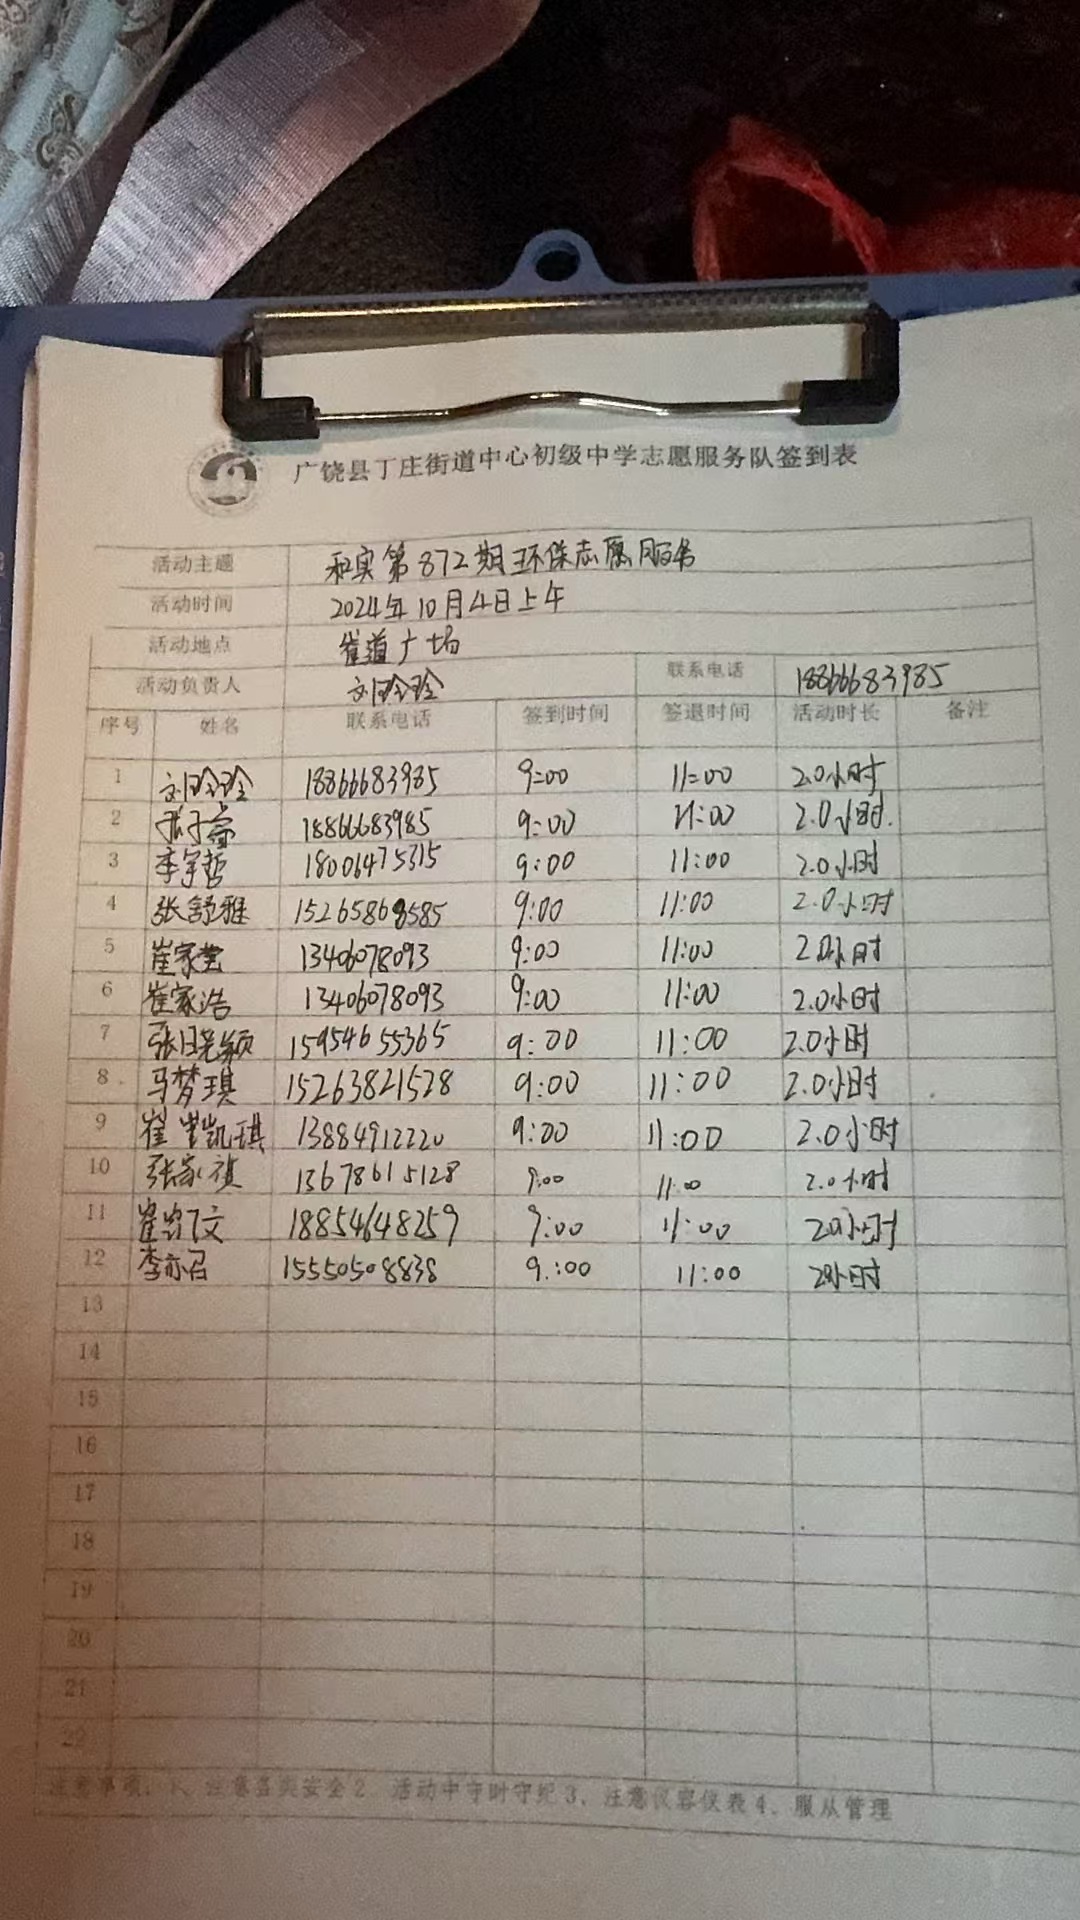 广饶县丁庄街道中心初级中学志愿服务队签到表
活动主题 和实第872期环保志愿服务
活动时间 2024年10月4日上午
活动地点 崔道广场
活动负责人 刘玲玲 联系电话 18866683985
序号 姓名 联系电话 签到时间 签退时间 活动时长 备注
1 刘玲玲 18866683985 9:00 11:00 2.0小时
2 18866683985 9:00 11:00 2.0小时.
3 李宇哲 18006475315 9:00 11:00 2.0小时
4 张舒雅 15265868585 9:00 11:00 2.0小时
5 崔家 13406078093 9:00 11:00 2.0小时
6 崔家浩 13406078093 9:00 11:00 2.0小时
7 张 颖 15954655365 9:00 11:00 2.0小时
8 马梦琪 15263821528 9:00 11:00 2.0小时
9 崔 凯琪 13884912220 9:00 11:00 2.0小时
10 张家祺 13678615128 9:00 11:00 2.0小时
11 崔 文 18854648259 9:00 11:00 2.0小时
12 李亦 15550508838 9:00 11:00 2小时
13
14
15
16
17
18
19
20
21
22
注意事项:1、注意 安全2 活动中守时守纪3、注意仪容仪表4、服从管理